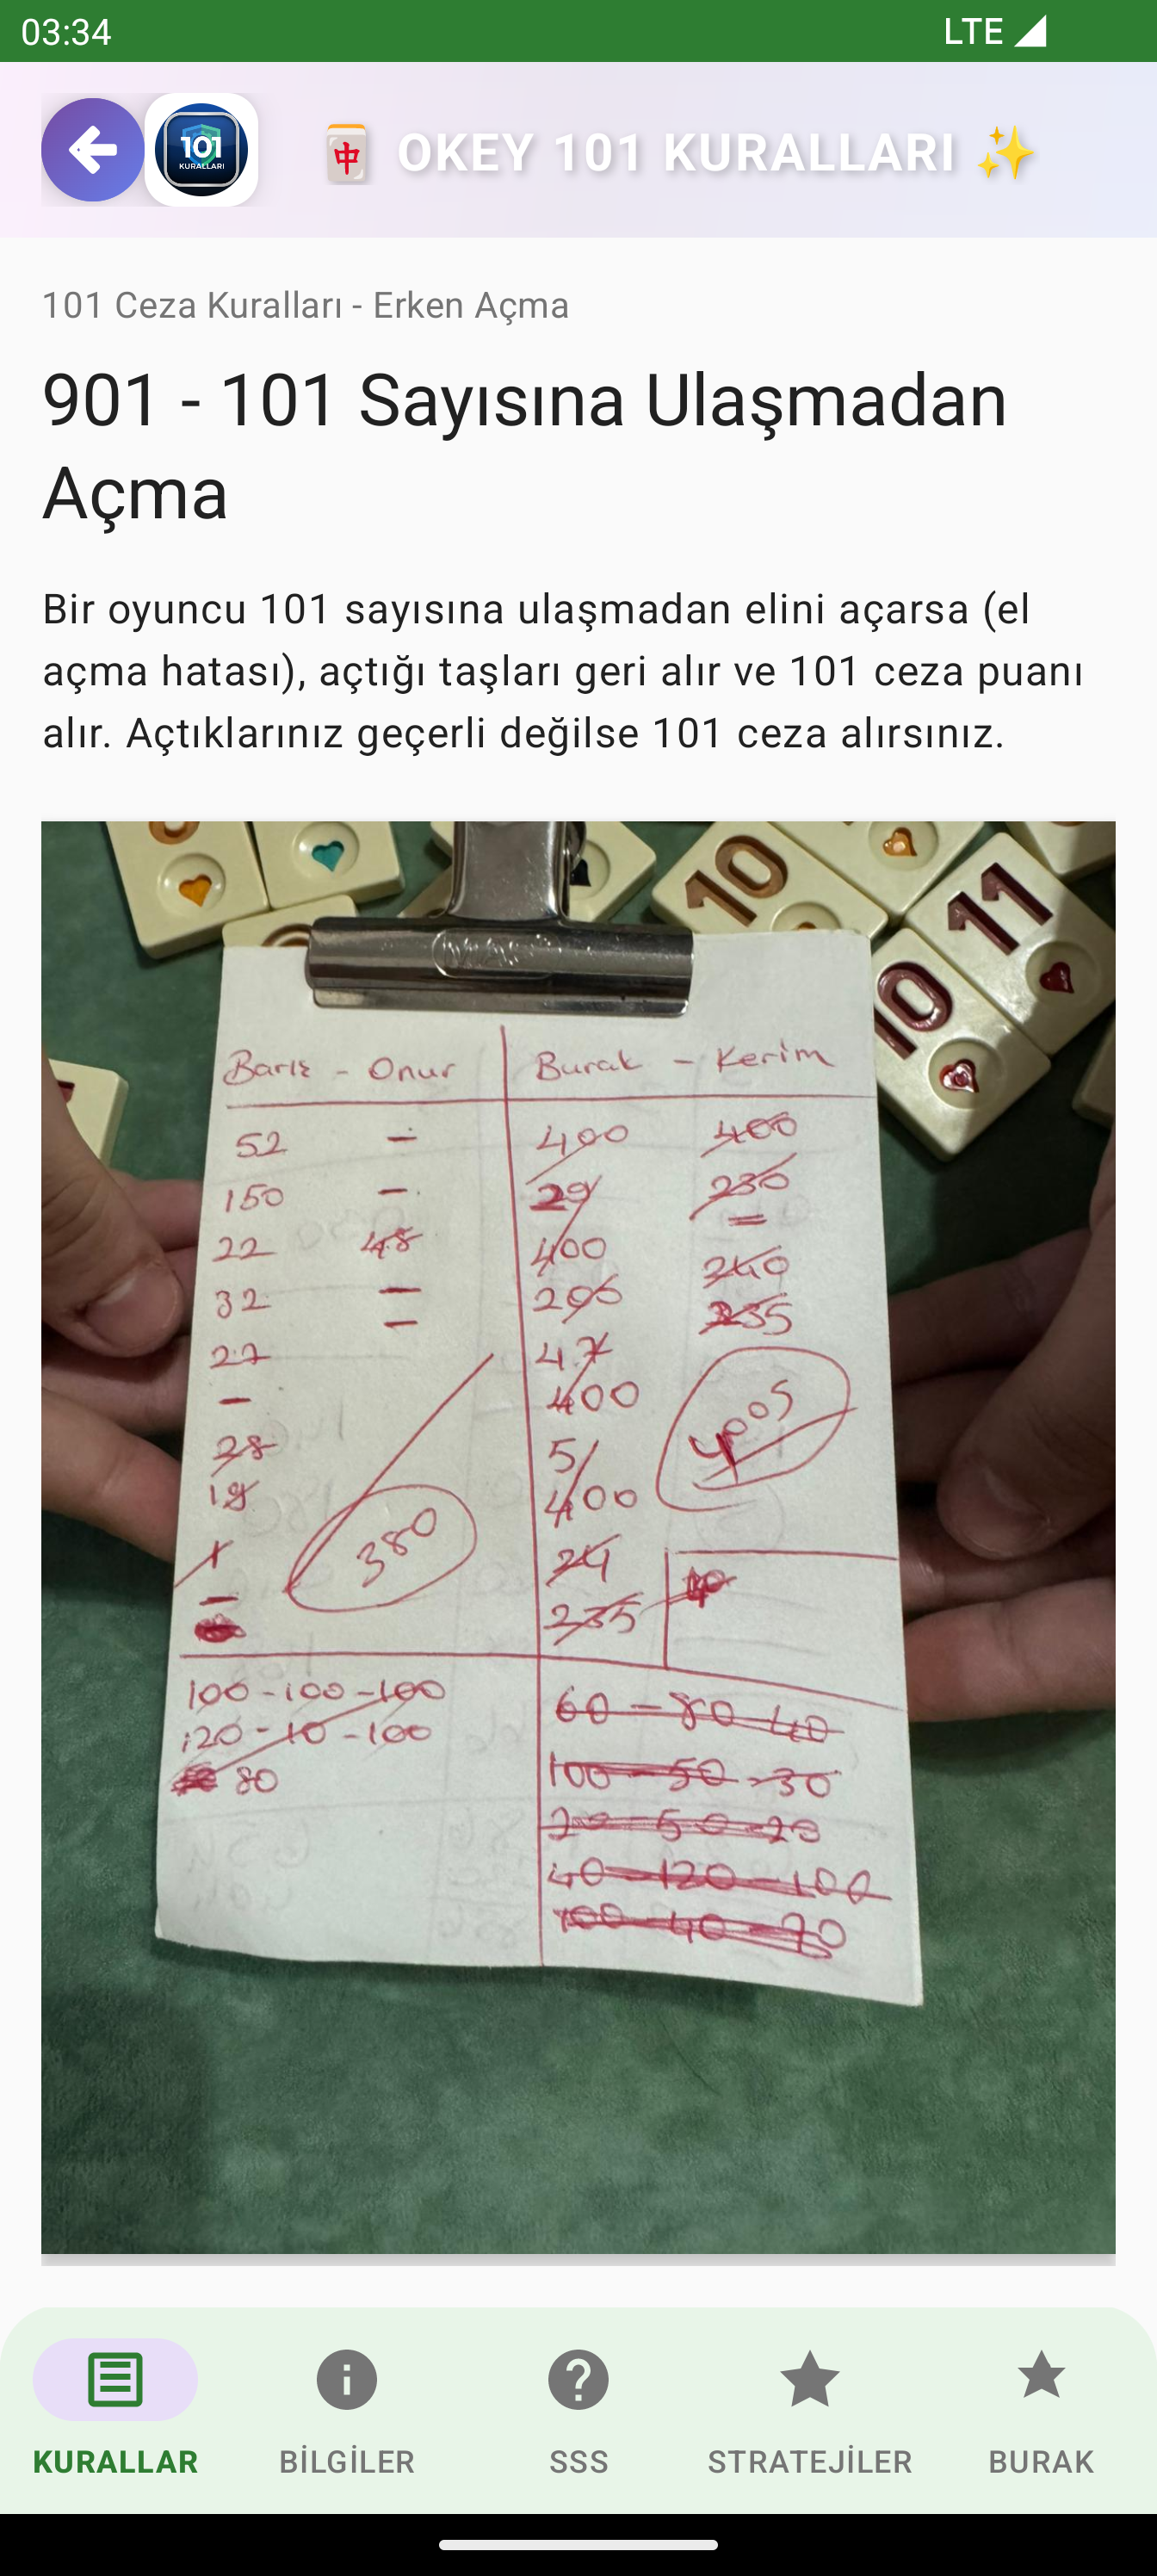 03:34 LTE
101 KURALLARI
中 OKEY 101 KURALLARI
101 Ceza Kuralları - Erken Açma
901 - 101 Sayısına Ulaşmadan
Açma
Bir oyuncu 101 sayısına ulaşmadan elini açarsa (el
açma hatası), açtığı taşları geri alır ve 101 ceza puanı
alır. Açtıklarınız geçerli değilse 101 ceza alırsınız.
10 11
10
Barış - Onur Burak - Kerim
52 - 400 400
150 - 29 230
22 48 400 240
32 - 296 235
27 - 47
- 400
28 5
19 400
380 4005
24
235
100-100-100 60-80-40
120-10-100 100-50-30
80 20-50-20
40-120-100
100-40-90
KURALLAR BİLGİLER SSS STRATEJİLER BURAK